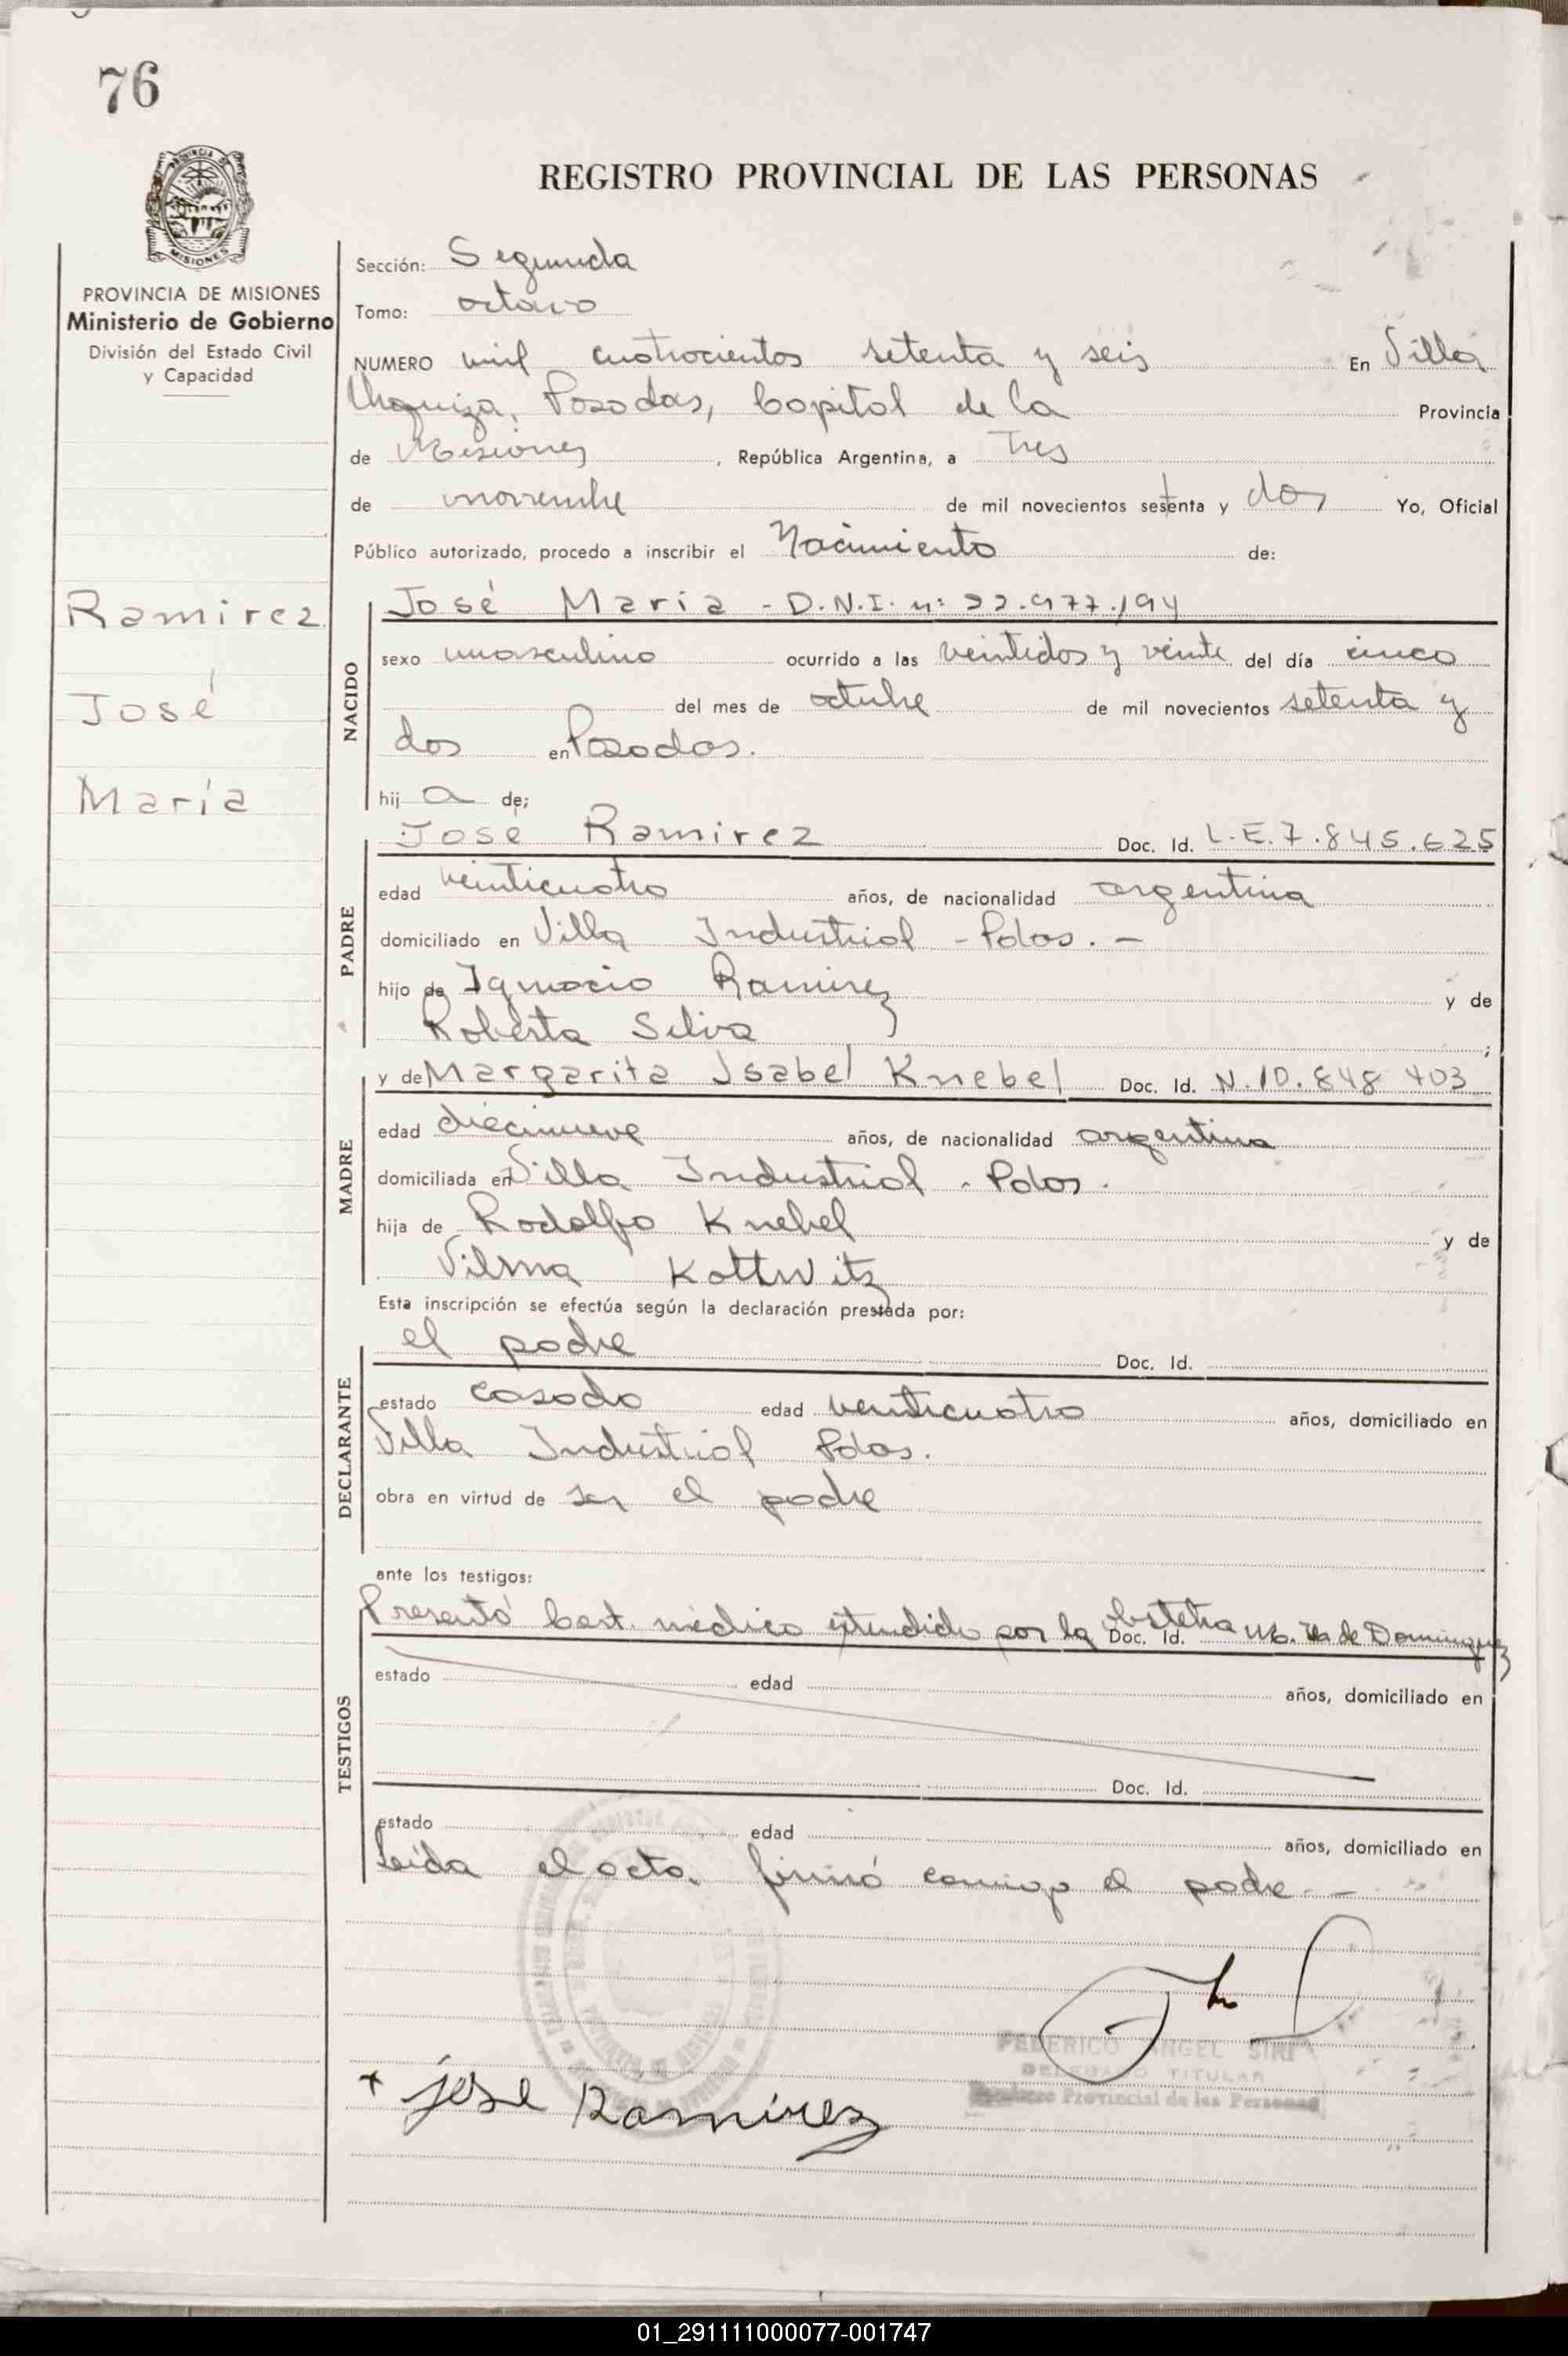 76
REGISTRO PROVINCIAL DE LAS PERSONAS
PROVINCIA DE
MISIONES
PROVINCIA DE MISIONES
Ministerio de Gobierno
División del Estado Civil
y Capacidad
Ramirez
José
María
Sección: Segunda
Tomo: octavo
NUMERO mil cuatrocientos setenta y seis En Villa
Urquiza, Posadas, Capital de la Provincia
de Misiones, República Argentina, a Tres
de noviembre de mil novecientos setenta y dos Yo, Oficial
Público autorizado, procedo a inscribir el Nacimiento de:
NACIDO
José María - D.N.I. nº 22.977.194
sexo masculino ocurrido a las veintidos y veinte del día cinco
del mes de octubre de mil novecientos setenta y
dos en Posadas.
hij a de;
PADRE
José Ramirez Doc. Id. L.E.7.845.625
edad veinticuatro años, de nacionalidad argentina
domiciliado en Villa Industrial - Pdas. -
hijo de Ignacio Ramirez y de
Roberta Silva ;
MADRE
y de Margarita Isabel Knebel Doc. Id. N.10.848 403
edad diecinueve años, de nacionalidad argentina
domiciliada en Villa Industrial - Pdas.
hija de Rodolfo Knebel y de
Vilma Kottwitz
Esta inscripción se efectúa según la declaración prestada por:
DECLARANTE
el padre Doc. Id.
estado casado edad veinticuatro años, domiciliado en
Villa Industrial Pdas.
obra en virtud de ser el padre
ante los testigos:
TESTIGOS
Presentó Cert. médico extendido por la Obstetra Doc. Id. de Dominguez
estado edad años, domiciliado en
Doc. Id.
estado edad años, domiciliado en
Leída el acta, firmó conmigo el padre. -
FEDERICO ANGEL SIRI
DELEGADO TITULAR
Registro Provincial de las Personas
x jose Ramirez
01_291111000077-001747